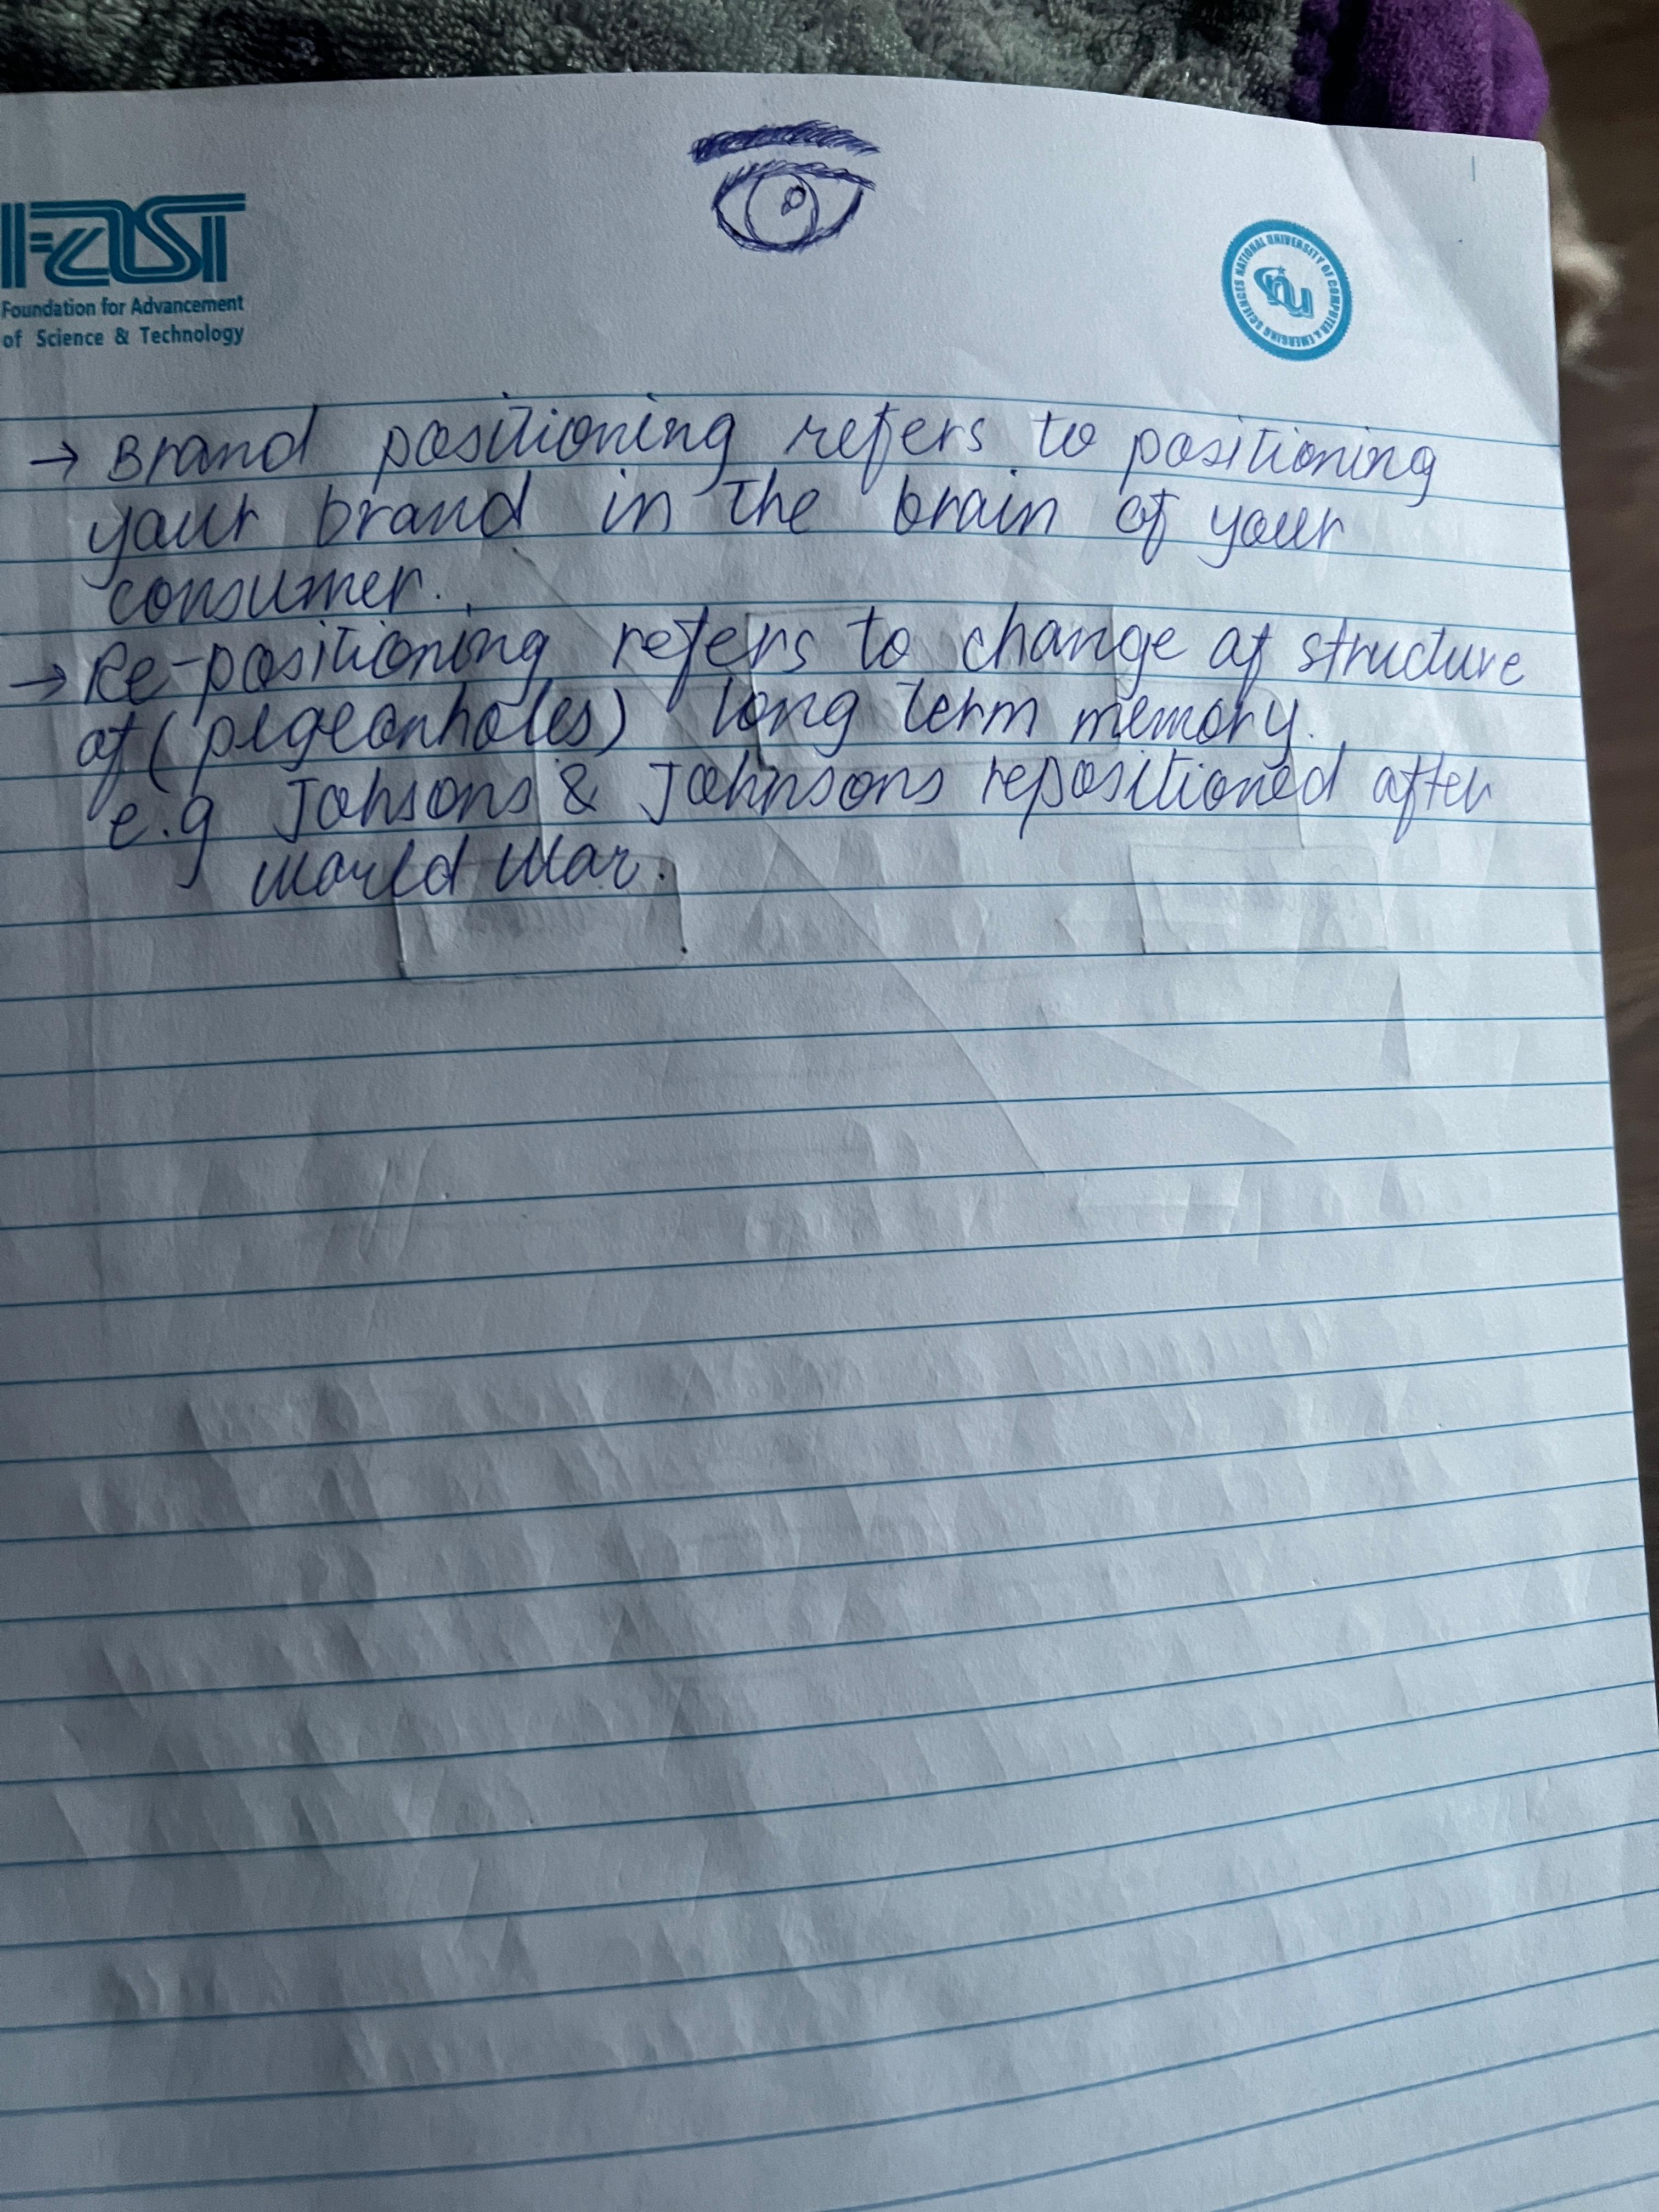 FAST
Foundation for Advancement
of Science & Technology
NATIONAL UNIVERSITY OF COMPUTER & EMERGING SCIENCES
nu
→ Brand positioning refers to positioning
your brand in the brain of your
consumer.
→ Re-positioning refers to change of structure
of (pigeonholes) long term memory.
e.g Johsons & Johnsons repositioned after
World War.